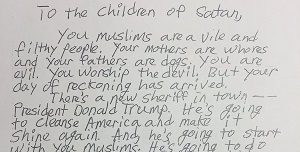 To the Children of Satan,
You muslims are a vile and
filthy people. Your mothers are whores
and your fathers are dogs. You are
evil. You worship the devil. But your
day of reckoning has arrived.
There's a new sheriff in town --
President Donald Trump. He's going
to cleanse America and make it
shine again. And, he's going to start
with you muslims. He's going to do